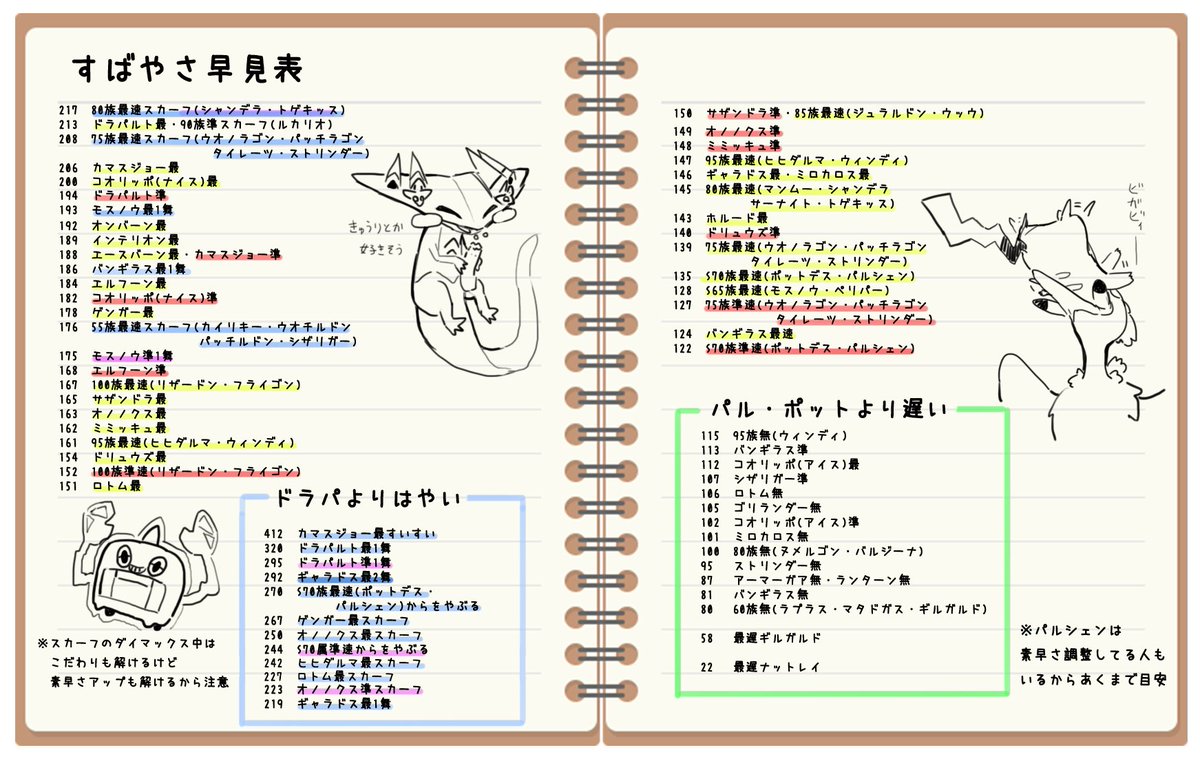 すばやさ早見表
217 80族最速スカーフ(シャンデラ・トゲキッス)
213 ドラパルト最・90族準スカーフ(ルカリオ)
208 75族最速スカーフ(ウオノラゴン・パッチラゴン
タイレーツ・ストリンダー)
206 カマスジョー最
200 コオリッポ(ナイス)最
194 ドラパルト準
193 モスノウ最1舞
192 オンバーン最
189 インテリオン最
188 エースバーン最・カマスジョー準
186 バンギラス最1舞
184 エルフーン最
182 コオリッポ(ナイス)準
178 ゲンガー最
176 55族最速スカーフ(カイリキー・ウオチルドン
パッチルドン・シザリガー)
175 モスノウ準1舞
168 エルフーン準
167 100族最速(リザードン・フライゴン)
165 サザンドラ最
163 オノノクス最
162 ミミッキュ最
161 95族最速(ヒヒダルマ・ウィンディ)
154 ドリュウズ最
152 100族準速(リザードン・フライゴン)
151 ロトム最
きゅうりとか
好きそう
ドラパよりはやい
412 カマスジョー最すいすい
320 ドラパルト最1舞
295 ドラパルト準1舞
292 ギャラドス最2舞
270 S70族最速(ポットデス・
パルシェン)からをやぶる
267 ゲンガー最スカーフ
250 オノノクス最スカーフ
244 S70族準速からをやぶる
242 ヒヒダルマ最スカーフ
227 ロトム最スカーフ
223 オノノクス準スカーフ
219 ギャラドス最1舞
※スカーフのダイマックス中は
こだわりも解けるけど
素早さアップも解けるから注意
150 サザンドラ準・85族最速(ジュラルドン・ウッウ)
149 オノノクス準
148 ミミッキュ準
147 95族最速(ヒヒダルマ・ウィンディ)
146 ギャラドス最・ミロカロス最
145 80族最速(マンムー・シャンデラ
サーナイト・トゲキッス)
143 ホルード最
140 ドリュウズ準
139 75族最速(ウオノラゴン・パッチラゴン
タイレーツ・ストリンダー)
135 S70族最速(ポットデス・パルシェン)
128 S65族最速(モスノウ・ペリパー)
127 75族準速(ウオノラゴン・パッチラゴン
タイレーツ・ストリンダー)
124 バンギラス最速
122 S70族準速(ポットデス・パルシェン)
パル・ポットより遅い
115 95族無(ウィンディ)
113 バンギラス準
112 コオリッポ(アイス)最
107 シザリガー準
106 ロトム無
105 ゴリランダー無
102 コオリッポ(アイス)準
101 ミロカロス無
100 80族無(ヌメルゴン・バルジーナ)
95 ストリンダー無
87 アーマーガア無・ランターン無
81 バンギラス無
80 60族無(ラプラス・マタドガス・ギルガルド)
58 最遅ギルガルド
22 最遅ナットレイ
※パルシェンは
素早さ調整してる人も
いるからあくまで目安